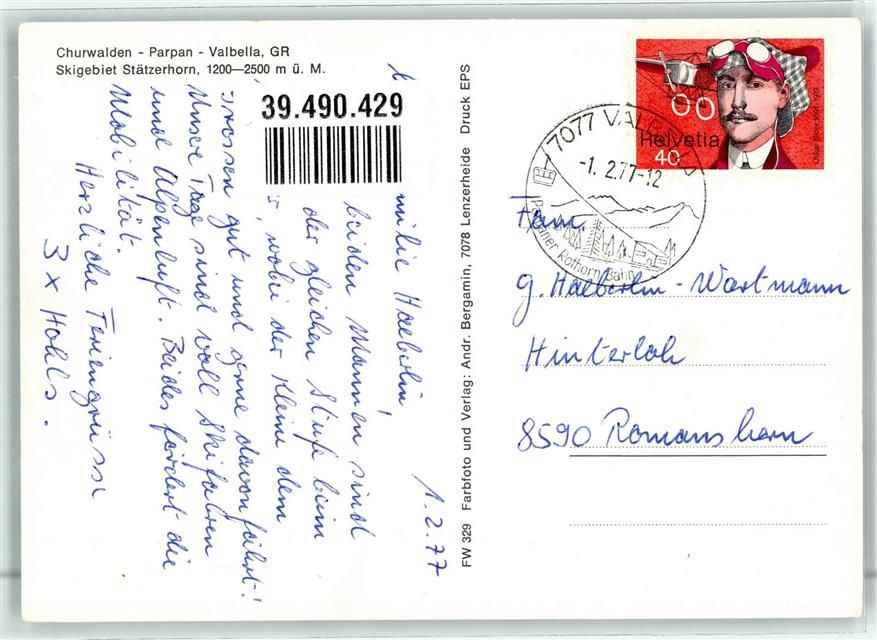 Churwalden - Parpan - Valbella, GR
Skigebiet Stätzerhorn, 1200—2500 m ü. M.
39.490.429
1.2.77
milie Haeberlin,
beiden Mannen sind
der gleichen Stufe beim
, wobei der Kleine dem
rossen gut und gerne davonfährt!
Unsere Tage sind voll Skifahren
und Alpenluft. Beides fördert die
Mobilität.
Herzliche Feriengrüsse
3 x Hohls.
FW 329 Farbfoto und Verlag: Andr. Bergamin, 7078 Lenzerheide Druck EPS
Helvetia
40
Oskar Bider 1891-1919
7077 VALBELLA
-1. 2.77-12
Parpaner Rothorn Bahn
Fam.
G. Haeberlin-Wartmann
Hinterloh
8590 Romanshorn